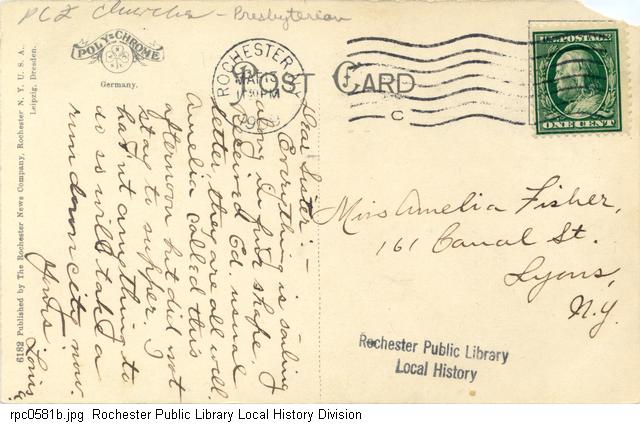 PCL Churches - Presbyterian
POLY-CHROME
Germany.
ROCHESTER, N.Y.
MAY 15
11 30 PM
1909
POST CARD
C
U.S. POSTAGE
ONE CENT
6182 Published by The Rochester News Company, Rochester N. Y. U. S. A.
Leipzig, Dresden.
Dear Sister: —
Everything is sailing
along in fine shape. I
received Ed. usual
letter, they are all well.
Amelia called this
afternoon but did not
stay to supper. I
hav'nt anything to
do so will take a
run down city now.
Yours
Louis
Miss Amelia Fisher,
161 Canal St.
Lyons,
N.Y.
Rochester Public Library
Local History
rpc0581b.jpg Rochester Public Library Local History Division